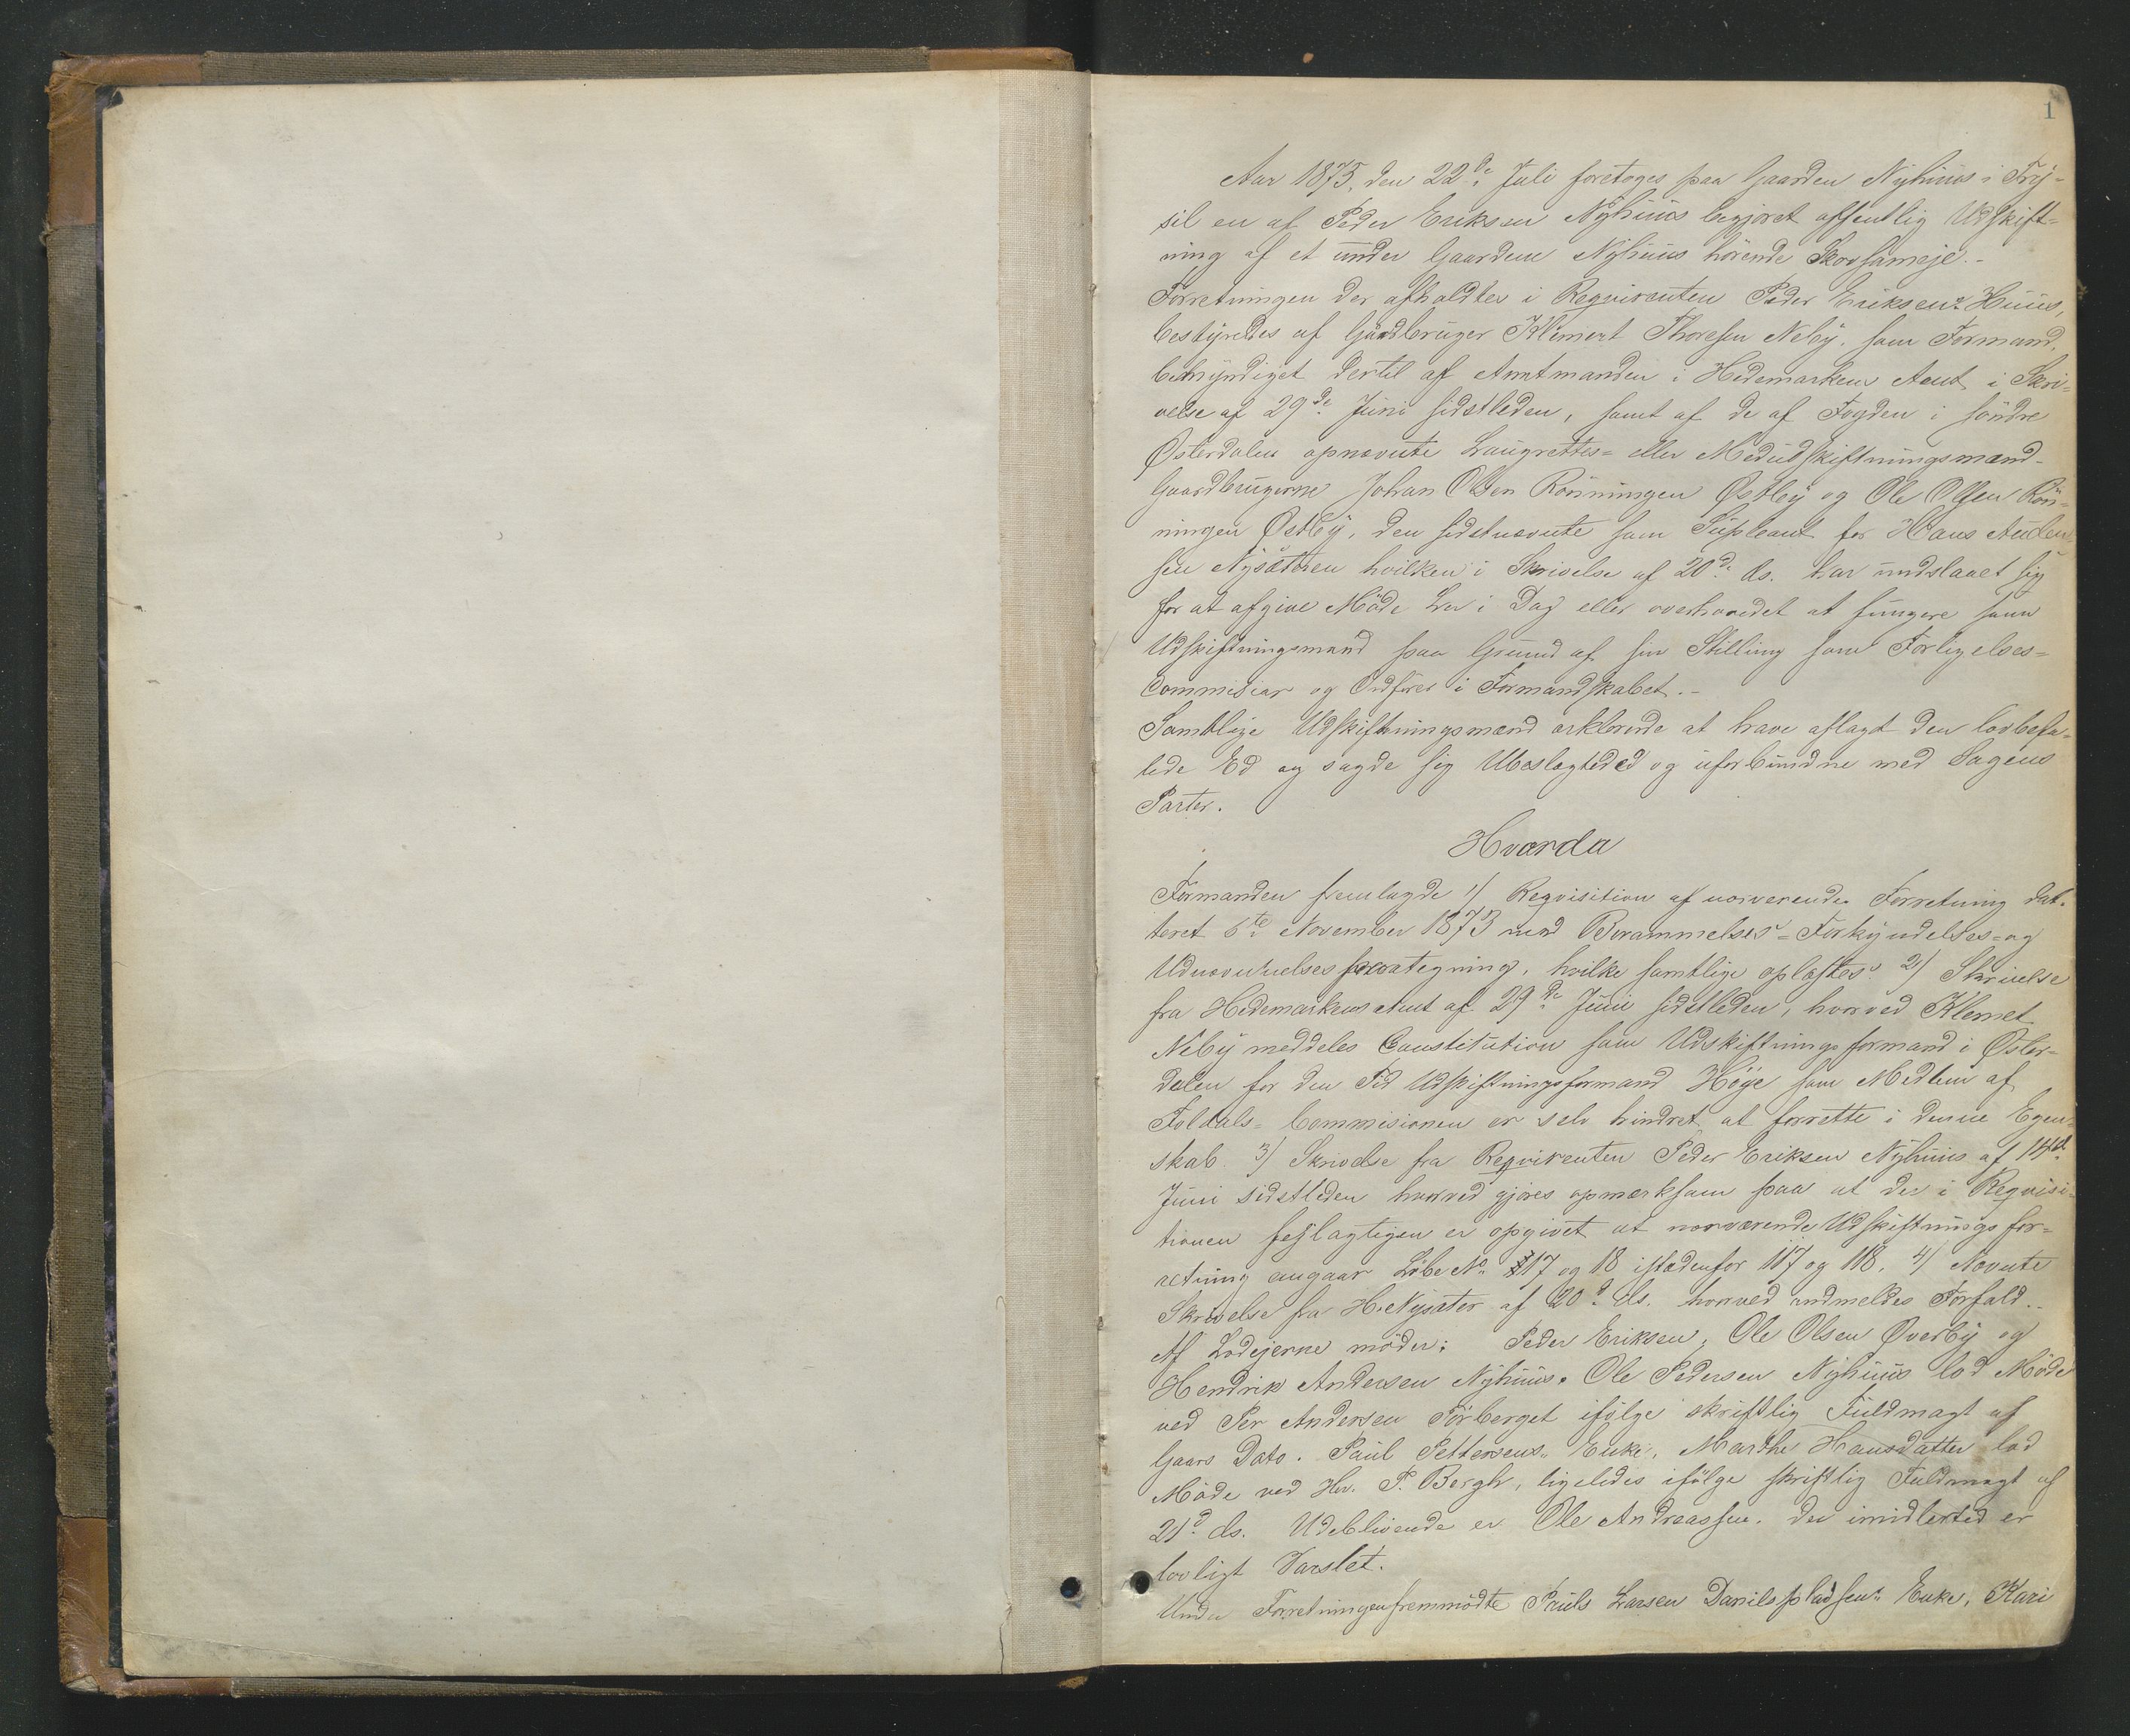 1
Aar 1875, den 22de Juli foretoges paa Gaarden Nyhuus i Try-
sil en af Peder Eriksen Nyhuus begjøret offentlig Udskift-
ning af et under Gaardene Nyhuus hørende Skovsameje.-
Forretningen der afholdtes i Reqvirenten Peder Eriksens Huus,
bestyredes af Gaardbruger Klemert Thoresen Neby, som Formand,
bemyndiget dertil af Amtmanden i Hedemarkens Amt i Skri-
velse af 29de Juni sidstleden, samt af de af Fogden i søndre
Østerdalen opnævnte Laugrettes- eller Medudskiftningsmænd-
Gaardbrugerne Johan Olsen Rønningen Østby og Ole Olsen Røn-
ningen Østby, den sidstnævnte som Supleant for Hans Anden-
sen Nysæteren hvilken i Skrivelse af 20d ds. har undslaaet sig
for at afgive Møde her i Dag eller overhovedet at fungere som
Udskiftningsmand paa Grund af sin Stilling som Forligelses-
Commisiær og Ordfører i Formandskabet.-
Samtlige Udskiftningsmænd erklærede at have aflagt den lovbefa-
lede Ed og sagde sig Ubeslægtded og uforbundne med Sagens
Parter.
Hvorda
Formanden fremlagde 1/ Reqvisition af nærverende Forretning dat-
teret 6te November 1873 med Berammelses- Forkyndelses- og
Udnævnelsespaategning, hvilke samtlige oplæstes. 2/ Skrivelse
fra Hedemarkens Amt af 29de Juni sidstleden, hvorved Klemet
Neby meddeles Constitution som Udskiftningsformand i Øster-
dalen for den Tid Udskiftningsformand Høye som Medlem af
Foldals- Commisionen er selv hindret at forrette i denne Egen-
skab. 3/ Skrivelse fra Reqvirenten Peder Eriksen Nyhuus af 14d
Juni sidstleden hvorved gjøres opmærksom paa at der i Reqvisi-
tionen fejlagtigen er opgivet at nærværende Udskiftningsfor-
retning angaar Løbe No 17 og 18 istedenfor 117 og 118. 4/ Nævnte
Skrivelse fra H. Nysæter af 20d ds. hvorved anmeldes Forfald.-
Af Lodejerne møder: Peder Eriksen, Ole Olsen Øverby og
Hendrik Andersen Nyhuus. Ole Pedersen Nyhuus lod Møde
ved Per Andersen Tørberget ifølge skriftlig Fuldmagt af
Gaars Dato. Paul Pettersens Enke, Marthe Hansdatter lod
Møde ved Hr. P. Bergh, ligeledes ifølge skriftlig Fuldmagt af
21d ds. Udeblivende er Ole Andreassen, der imidlertid er
lovligt Varslet.
Under Forretningen fremmødte Pauls Larsen Danielspladsens Enke, Kari